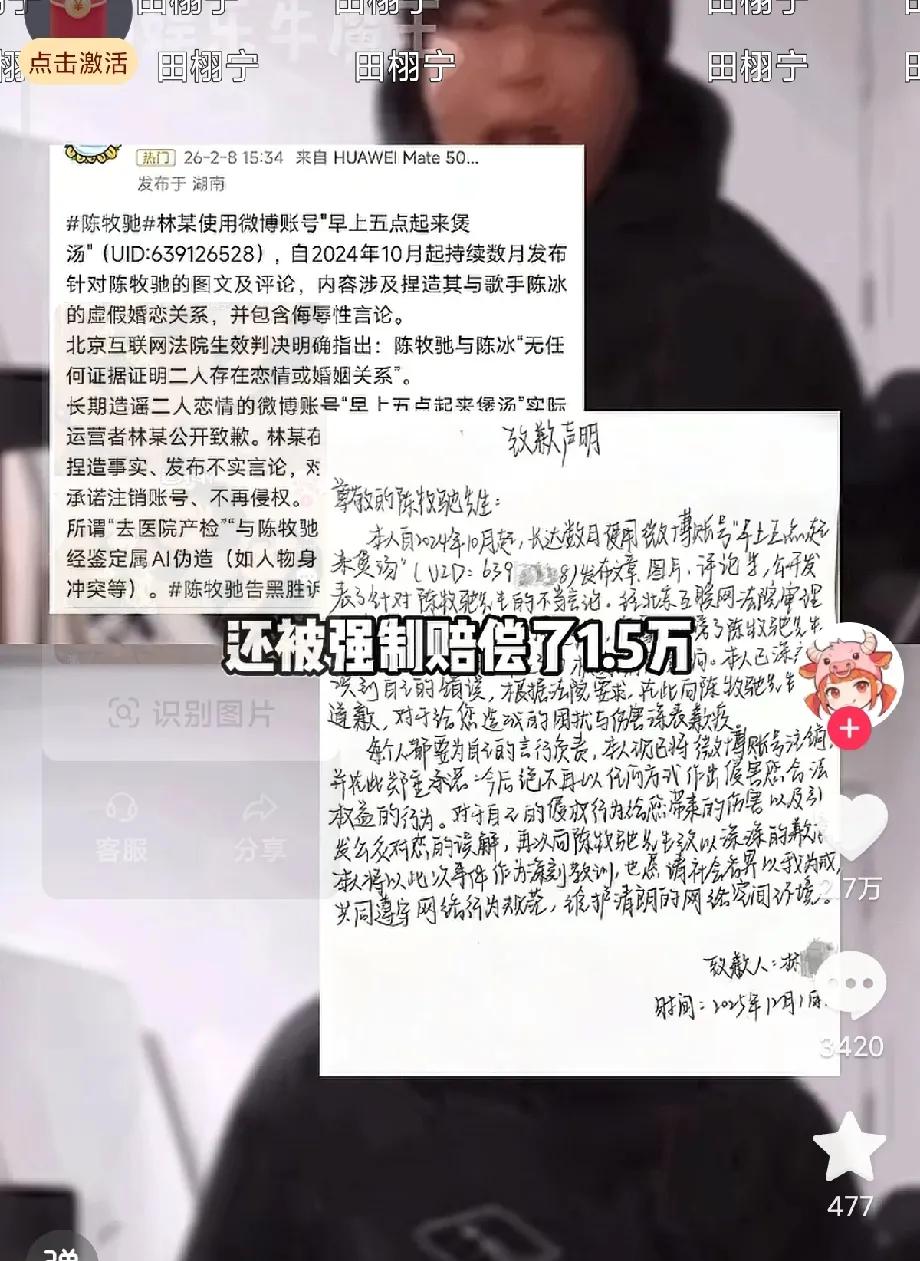 田栩宁 田栩宁 田栩宁
点击激活 田栩宁 田栩宁 田栩宁
热门 26-2-8 15:34 来自 HUAWEI Mate 50...
发布于 湖南
#陈牧驰#林某使用微博账号"早上五点起来煲
汤"（UID:639126528），自2024年10月起持续数月发布
针对陈牧驰的图文及评论，内容涉及捏造其与歌手陈冰
的虚假婚恋关系，并包含侮辱性言论。
北京互联网法院生效判决明确指出：陈牧驰与陈冰“无任
何证据证明二人存在恋情或婚姻关系”。
长期造谣二人恋情的微博账号“早上五点起来煲汤”实际
运营者林某公开致歉。林某在
捏造事实、发布不实言论，对
承诺注销账号、不再侵权。
所谓“去医院产检”“与陈牧驰
经鉴定属AI伪造（如人物身
冲突等）。#陈牧驰告黑胜诉
致歉声明
尊敬的陈牧驰先生：
本人自2024年10月起，长达数月使用微博账号"早上五点起
来煲汤"（UID：639 8)发布文章、图片、评论等，公开发
表了针对陈牧驰先生的不当言论。经北京互联网法院审理
了陈牧驰先生
还被强制赔偿了1.5万
本人已深
识到自己的错误，根据法院要求，在此向陈牧驰先生
道歉，对于给您造成的困扰与伤害深表歉疚。
每个人都要为自己的言行负责，本人现已将微博账号注销，
并在此郑重承诺：今后绝不再以任何方式作出侵害您合法
权益的行为。对于自己的侵权行为给您带来的伤害以及引
发公众对您的误解，再次向陈牧驰先生致以深深的歉
本人将以此次事件作为深刻教训，也恳请社会各界以我为戒，
共同遵守网络行为规范，维护清朗的网络空间环境。
致歉人：林
时间：2025年12月1日
识别图片
客服 分享
2.7万
3420
477
弹